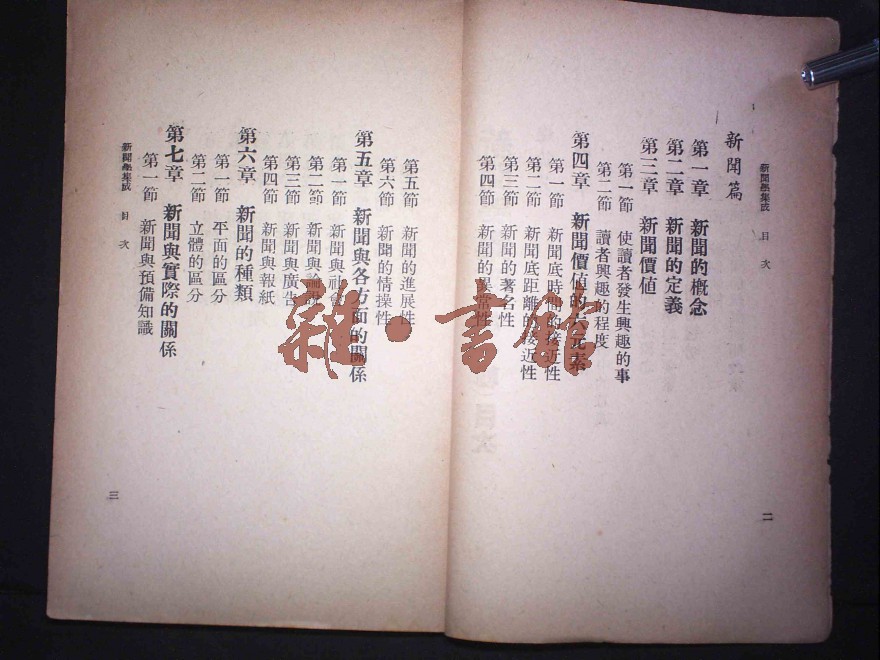 新聞學集成 目次
新聞篇
第一章 新聞的概念
第二章 新聞的定義
第三章 新聞價値
第一節 使讀者發生興趣的事
第二節 讀者興趣的程度
第四章 新聞價值的六元素
第一節 新聞底時間的接近性
第二節 新聞底距離的接近性
第三節 新聞的著名性
第四節 新聞的異常性
二
第五節 新聞的進展性
第六節 新聞的情操性
第五章 新聞與各方面的關係
第一節 新聞與社會
第二節 新聞與論說
第三節 新聞與廣告
第四節 新聞與報紙
第六章 新聞的種類
第一節 平面的區分
第二節 立體的區分
第七章 新聞與實際的關係
第一節 新聞與預備知識
新聞學集成 目次
三
雜·書館